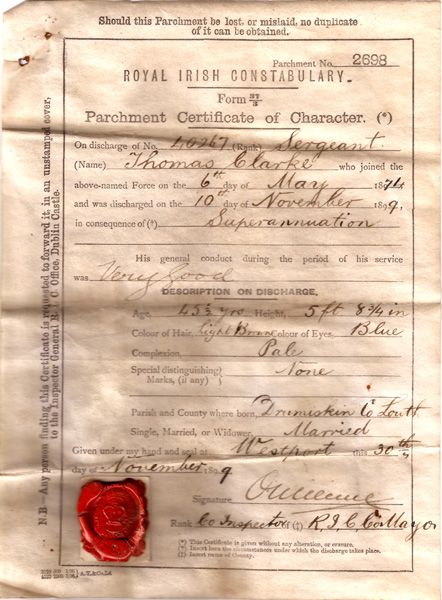 Should this Parchment be lost or mislaid, no duplicate
of it can be obtained.
Parchment No. 2698
ROYAL IRISH CONSTABULARY.
Form 37/3
Parchment Certificate of Character. (*)
On discharge of No. 40267 (Rank) Sergeant
(Name) Thomas Clarke who joined the
above-named Force on the 6th day of May 1874,
and was discharged on the 10th day of November 1899,
in consequence of (*) Superannuation
His general conduct during the period of his service
was Very Good
DESCRIPTION ON DISCHARGE.
Age, 45 yrs Height, 5ft 8¾ in
Colour of Hair, Light Brown Colour of Eyes, Blue
Complexion, Pale
Special distinguishing Marks, (if any) None
Parish and County where born, Drumiskin Co Louth
Single, Married, or Widower, Married
Given under my hand and seal at Westport this 30th
day of November 189 9
Signature,
Rank Co Inspector of (‡) R.I.C. Co Mayo
(*) This Certificate is given without any alteration, or erasure.
(†) Insert here the circumstances under which the discharge takes place.
(‡) Insert name of County.
N.B.—Any person finding this Certificate is requested to forward it, in an unstamped cover,
to the Inspector General R. I. C. Office, Dublin Castle.
A.T.&Co.Ld